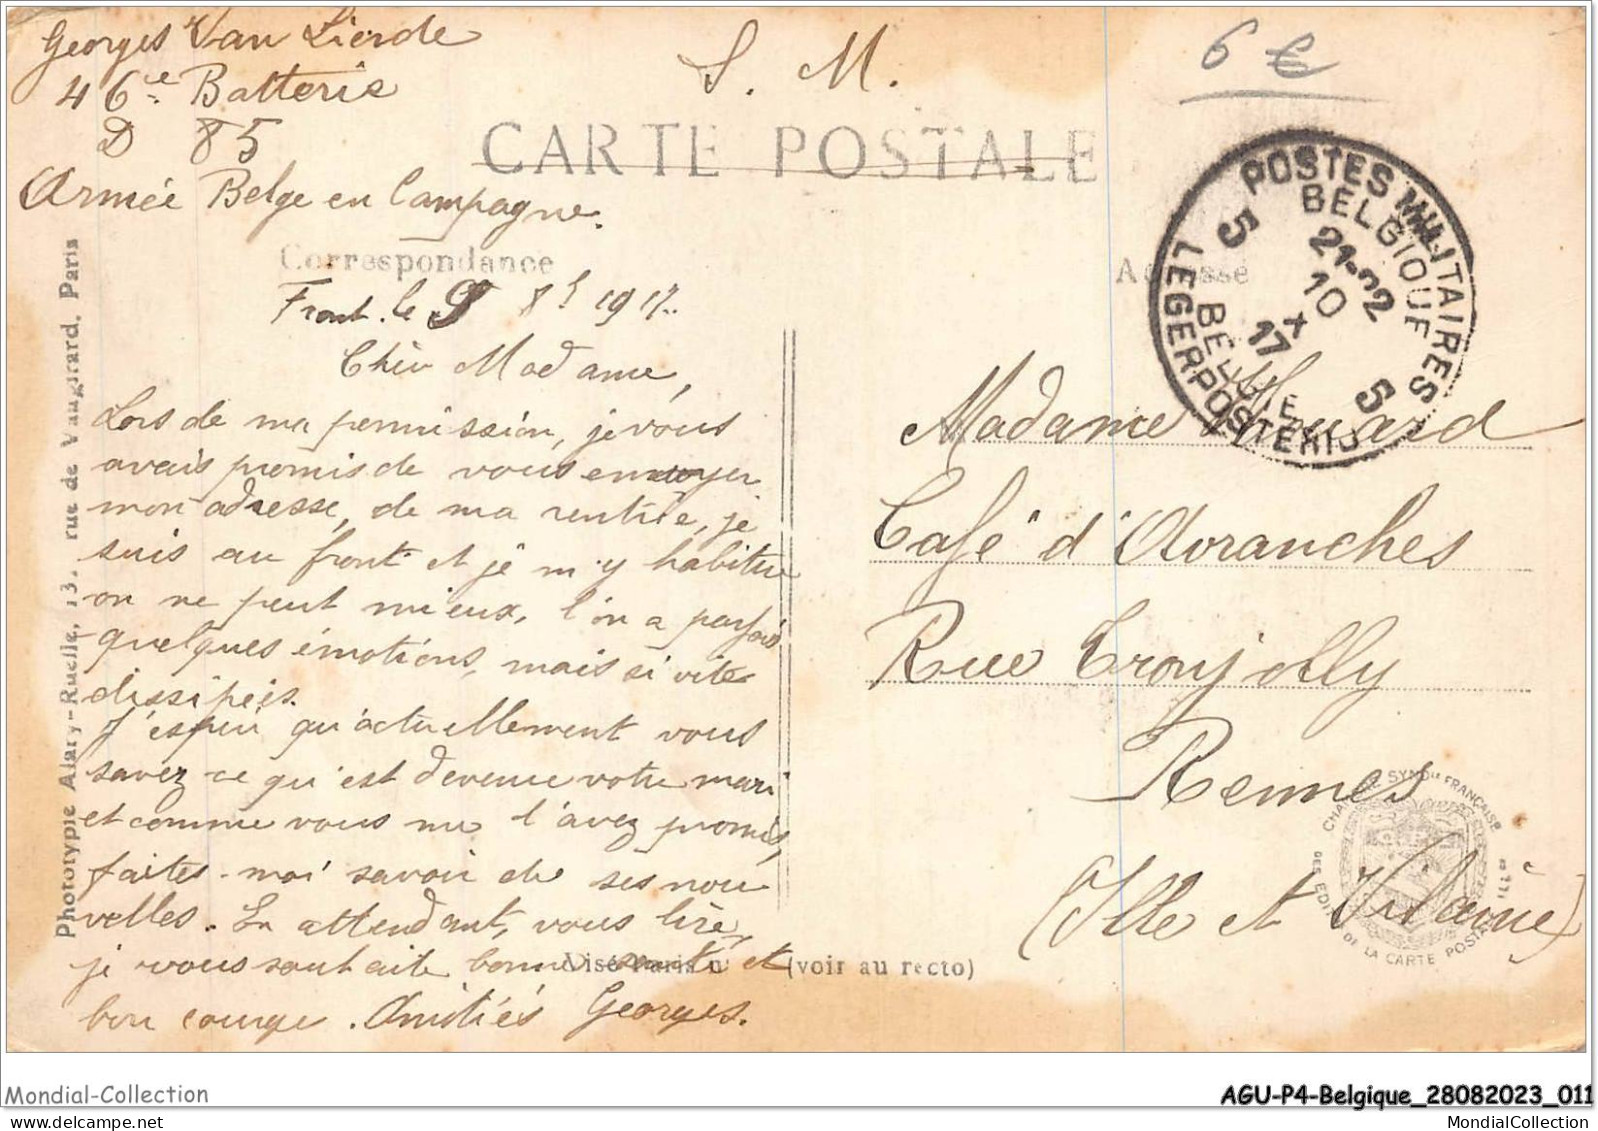 Georges Van Lierde
46e Batterie
D 85
Armée Belge en Campagne.
S. M.
6 €
CARTE POSTALE
Correspondance
Adresse
POSTES MILITAIRES
BELGIQUE
5 21-22 5
10
X
17
BELGIE
LEGERPOSTERIJ
Front. le 9 8bre 1917.
Chère Madame,
Lors de ma permission, je vous
avais promis de vous envoyer
mon adresse, de ma rentrée, je
suis au front et je m'y habitue
on ne peut mieux, l'on a parfois
quelques émotions, mais si vite
dissipées.
J'espère qu'actuellement vous
savez ce qu'est devenu votre mari
et comme vous me l'avez promis,
faites-moi savoir de ses nou
velles. En attendant, vous lire,
je vous souhaite bonne santé et
bon courage. Amitiés Georges.
Madame Huard
Café d'Avranches
Rue Tronjolly
Rennes
(Ille et Vilaine)
Visé Paris n° (voir au recto)
Phototypie Alary-Ruelle, 13, rue de Vaugirard, Paris
CHAMBRE SYNDle FRANÇAISE
DES EDIT DE LA CARTE POSTALE ILLée
Mondial-Collection
AGU-P4-Belgique_28082023_011
www.delcampe.net
MondialCollection